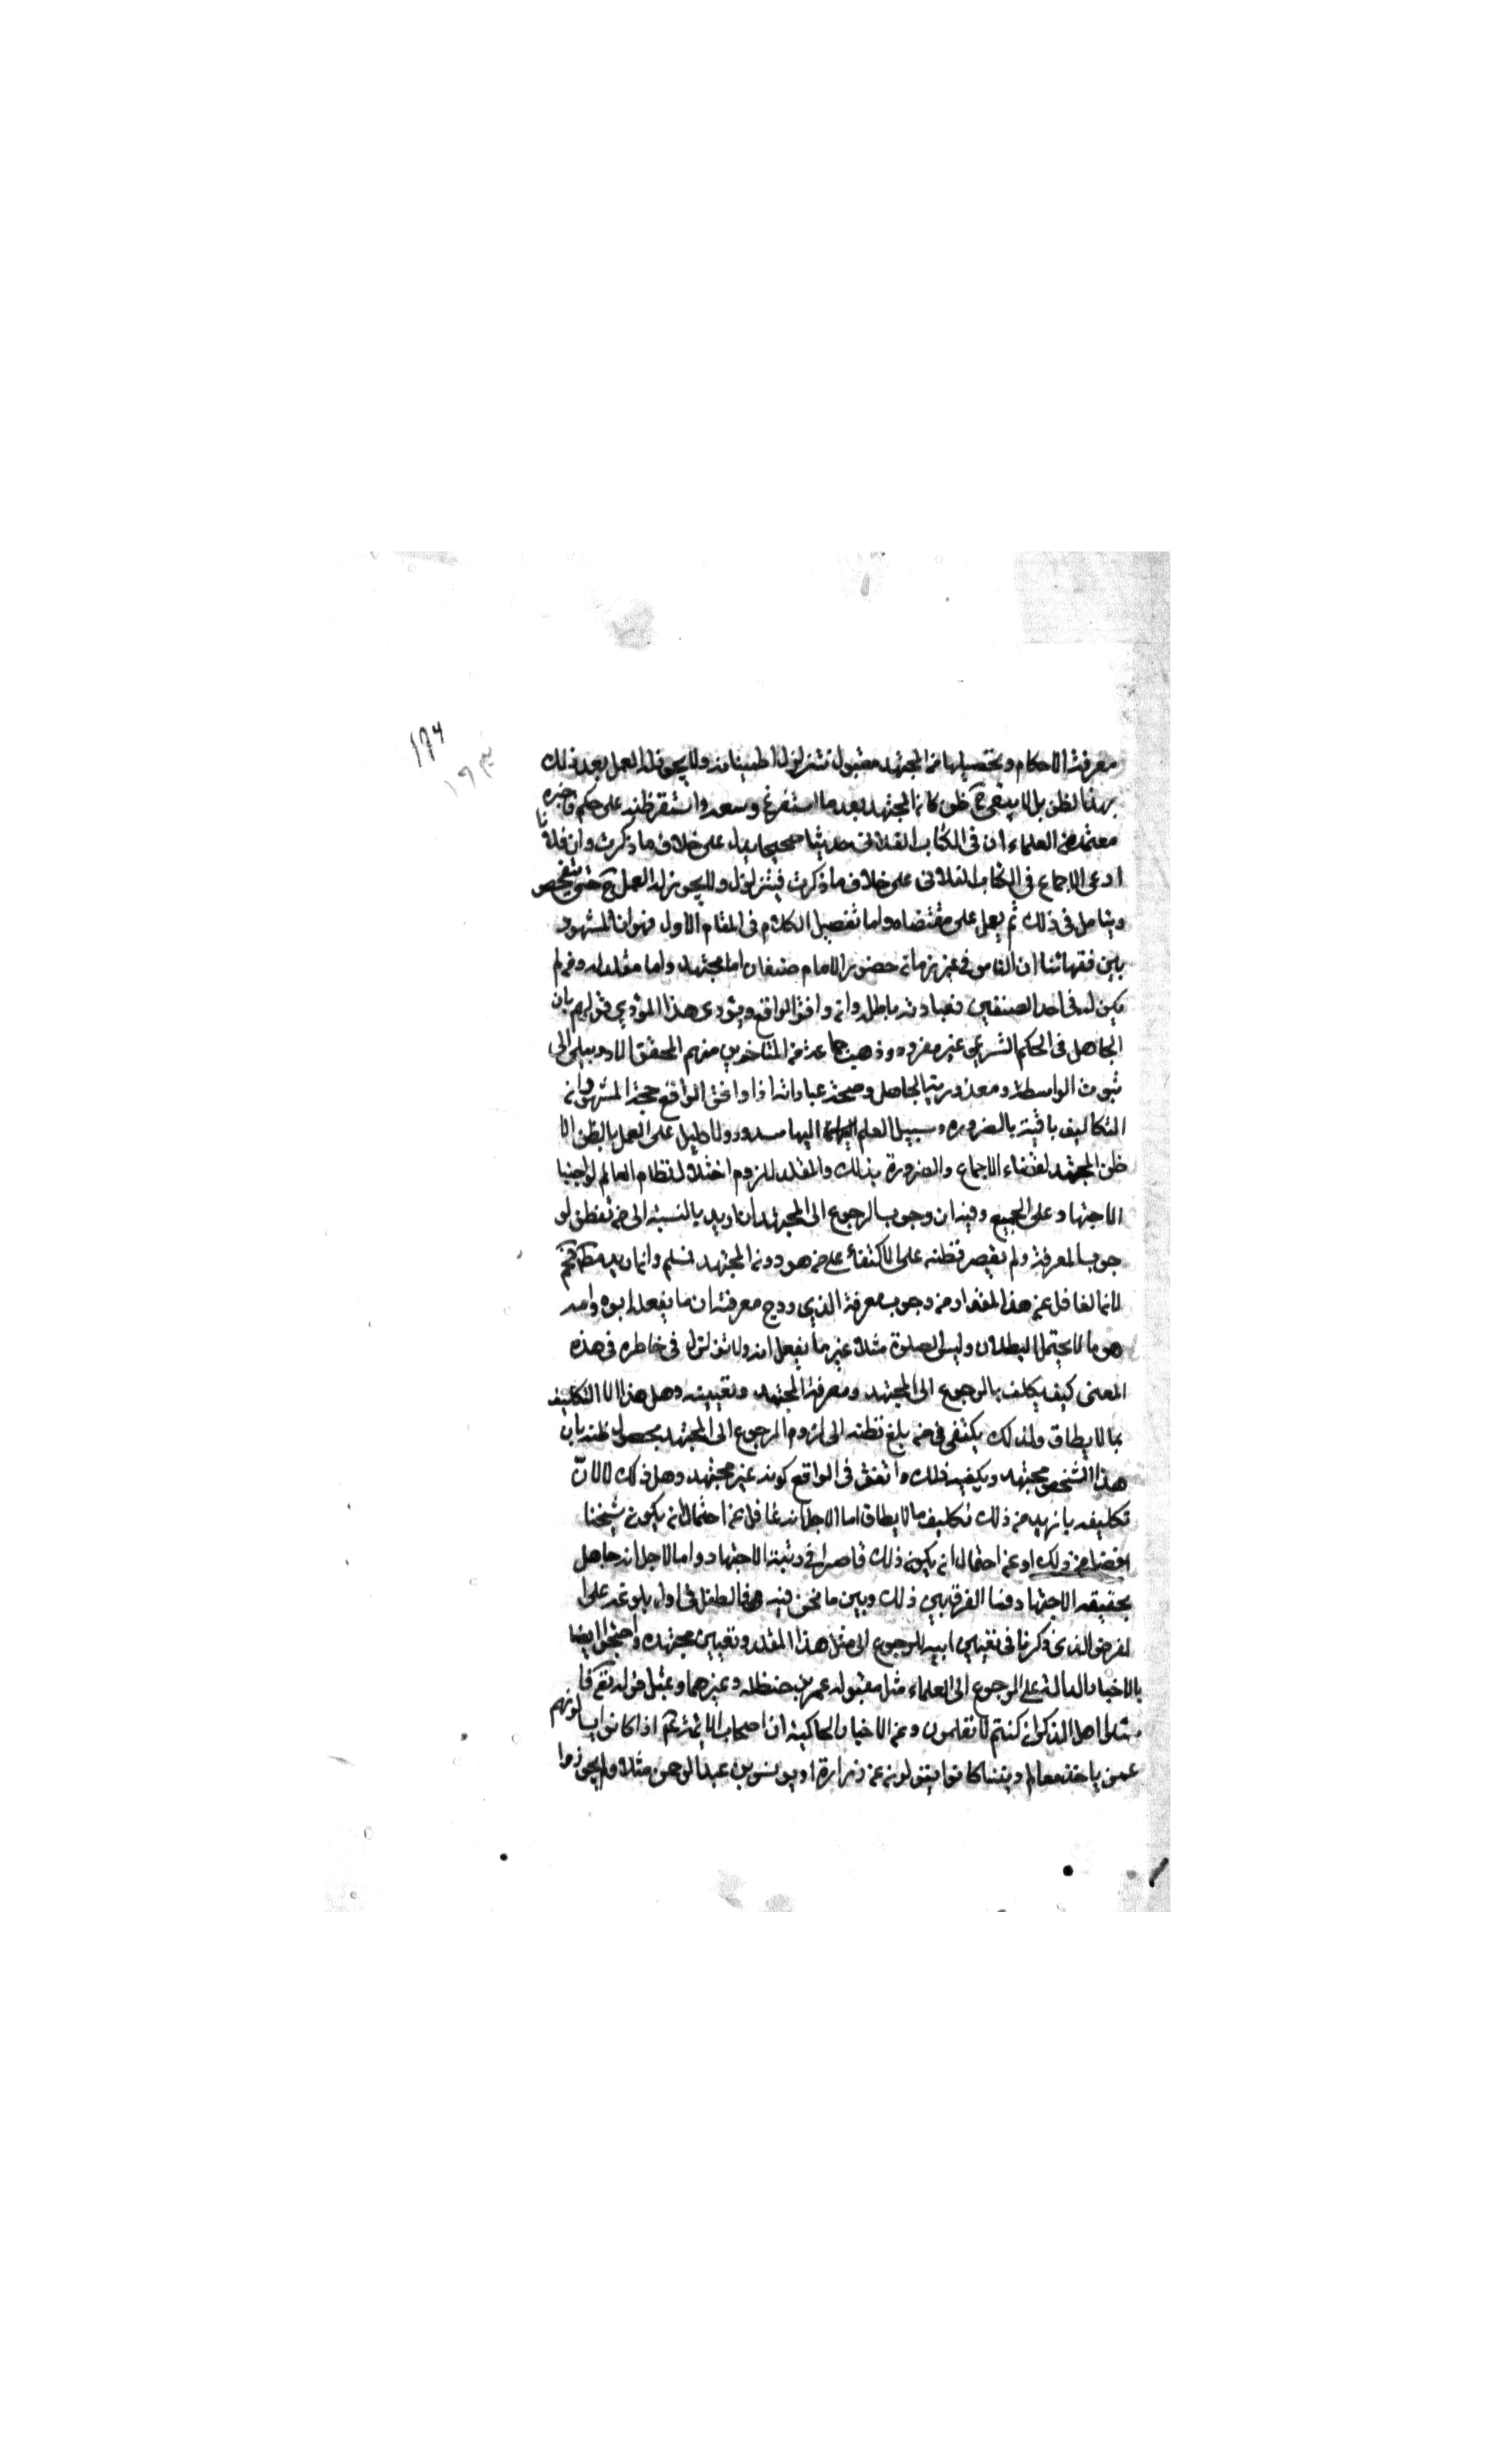 ١٦٤
١٦٣
معرفة الاحكام وتحصيلها من المجتهد مقبول فتزلزل اطمينانه ولا يجوز له العمل بعد ذلك
بهذا الظن بل لا يبقى ح ظن كما ان المجتهد بعد ما استفرغ وسعه واستقر ظنه على حكم فاخبره
معتمد من العلماء ان في الكتاب الفلاني حديثا صحيحا يدل على خلاف ما ذكرت وان فلانا
ادعى الاجماع في الكتاب الفلاني على خلاف ما ذكرت فيتزلزل ولا يجوز له العمل ح حتى يتفحص
ويتامل في ذلك ثم يعمل على مقتضاه واما تفصيل الكلام في المقام الاول فهو ان المشهور
بين فقهائنا ان الناس في غير زمان حضور الامام صنفان اما مجتهد واما مقلد له ومن لم
يكن له في احد الصنفين فعبادته باطلة وان وافق الواقع ويؤدى هذا المؤدي قولهم بان
الجاهل في الحكم الشرعي غير معذور وذهب جماعة من المتاخرين منهم المحقق الاردبيلي الى
ثبوت الواسطة ومعذورية الجاهل وصحة عباداته اذا وافق الواقع حجة المشهور ان
التكاليف باقية بالضرورة وسبيل العلم اليها مسدود ولا دليل على العمل بالظن الا
ظن المجتهد لقضاء الاجماع والضرورة بذلك والمقلد للزوم اختلال نظام العالم لو اوجبنا
الاجتهاد على الجميع وفيه ان وجوب الرجوع الى المجتهد ان اريد بالنسبة الى من تفطن لو
جوب المعرفة ولم يقصر فطنه على الاكتفاء على من هو دون المجتهد فمسلم وان اريد مطلقا فمم
لان الغافل عن هذا المقدار من وجوب معرفة الذي ودج معرفته ان ما يفعله ابوه وامه
هو ما لا يحتمل البطلان وليس الصلوة مثلا غير ما يفعل امه ولا تزلزل في خاطره في هذه
المعنى كيف يكلف بالرجوع الى المجتهد ومعرفة المجتهد وتعيينه وهل هذا الا التكليف
بما لا يطاق ولذلك يكتفى في من بلغ فطنه الى لزوم الرجوع الى المجتهد بحصول ظنه بان
هذا الشخص مجتهد ويكفيه ذلك واتفق في الواقع كونه غير مجتهد وهل ذلك الا لان
تكليفه بازيد من ذلك تكليف ما لا يطاق اما لاجل انه غافل عن احتمال ان يكون شيخنا
افضل من ذلك او عن احتمال ان يكون ذلك قاصرا في رتبة الاجتهاد واما لاجل انه جاهل
بحقيقة الاجتهاد فما الفرق بين ذلك وبين ما نحن فيه فالطفل في اول بلوغه على ا
لفرض الذي ذكرنا في تعيين ابيه للرجوع الى مثل هذا المقلد وتعيين مجتهده واحتجوا ايضا
بالاخبار الدالة على الرجوع الى العلماء مثل مقبولة عمر بن حنظلة وغيرهما وبمثل قوله تعم فا
سئلوا اهل الذكر ان كنتم لا تعلمون ومن الاخبار الحاكية ان اصحاب الائمة عم اذا كانوا يسالونهم
عمن ياخذ معالم ديننا كانوا يقولون عن زرارة او يونس بن عبد الرحمن مثلا ولم يجوزوا